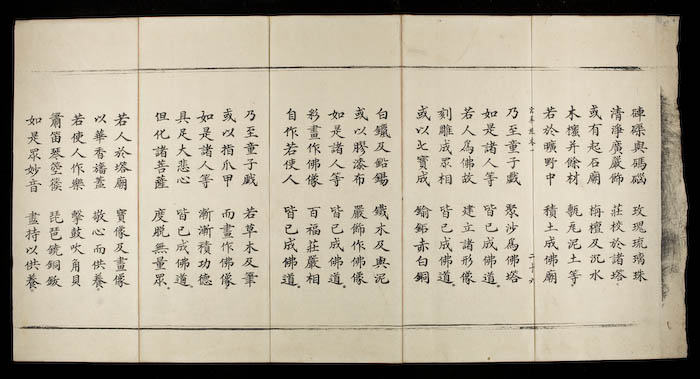 硨磲與碼碯 玫瑰琉璃珠
清淨廣嚴飾 莊校於諸塔
或有起石廟 栴檀及沉水
木櫁并餘材 甎瓦泥土等
若於曠野中 積土成佛廟
乃至童子戲 聚沙為佛塔
如是諸人等 皆已成佛道
若人為佛故 建立諸形像
刻雕成眾相 皆已成佛道
或以七寶成 鍮鉐赤白銅
白鑞及鉛錫 鐵木及與泥
或以膠漆布 嚴飾作佛像
如是諸人等 皆已成佛道
彩畫作佛像 百福莊嚴相
自作若使人 皆已成佛道
乃至童子戲 若草木及筆
或以指爪甲 而畫作佛像
如是諸人等 漸漸積功德
具足大悲心 皆已成佛道
但化諸菩薩 度脫無量眾
若人於塔廟 寶像及畫像
以華香旛蓋 敬心而供養
若使人作樂 擊鼓吹角貝
簫笛琴箜篌 琵琶鐃銅鈸
如是眾妙音 盡持以供養